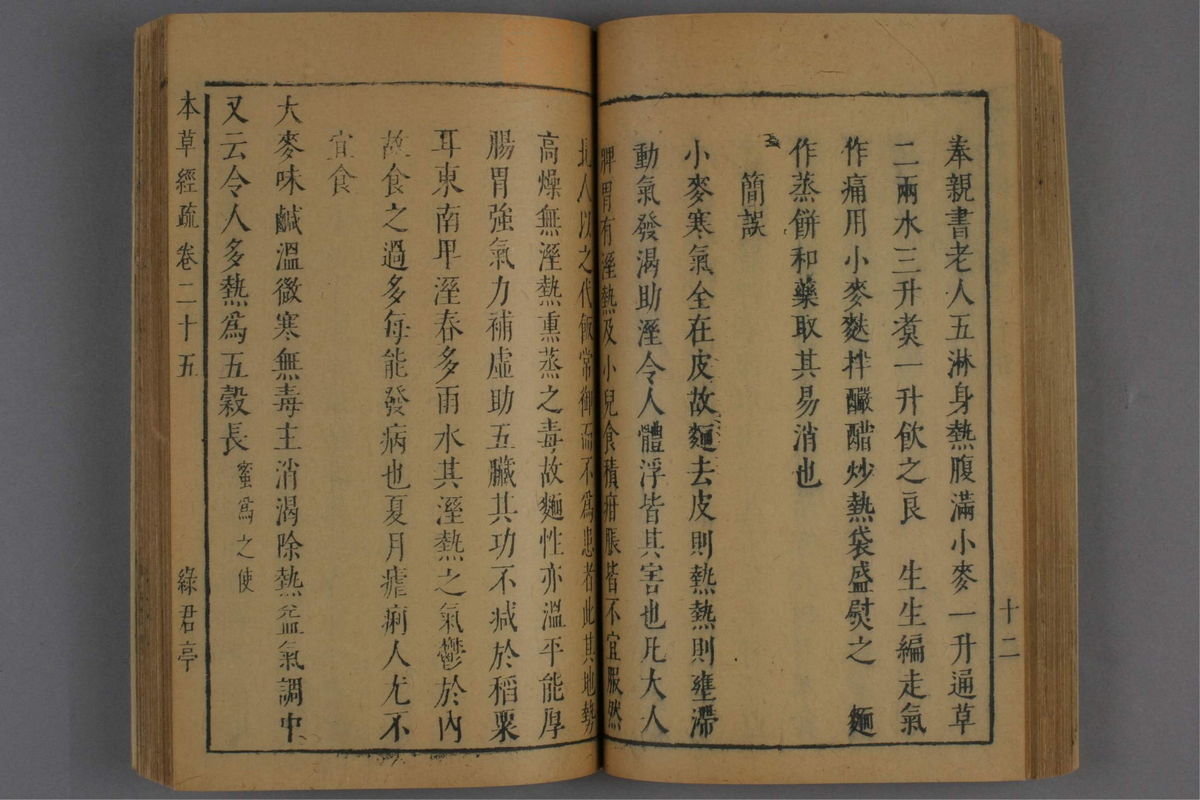 奉親書老人五淋身熱腹滿小麥一升通草
二兩水三升煑一升飲之良　生生編走氣
作痛用小麥麩拌釅醋炒熱袋盛熨之　麵
作蒸餅和藥取其易消也
簡誤
小麥寒氣全在皮故麵去皮則熱熱則壅滯
動氣發渴助溼令人體浮皆其害也凡大人
脾胃有溼熱及小兒食積疳脹皆不宜服然
北人以之代飯常御而不爲患者此其地勢
高燥無溼熱熏蒸之毒故麵性亦溫平能厚
腸胃強氣力補虛助五臟其功不减於稻粟
耳東南卑溼春多雨水其溼熱之氣鬱於內
故食之過多每能發病也夏月瘧痢人尤不
宜食
大麥味鹹溫微寒無毒主消渴除熱益氣調中
又云令人多熱爲五穀長蜜爲之使
本草經疏卷二十五　綠君亭
十二